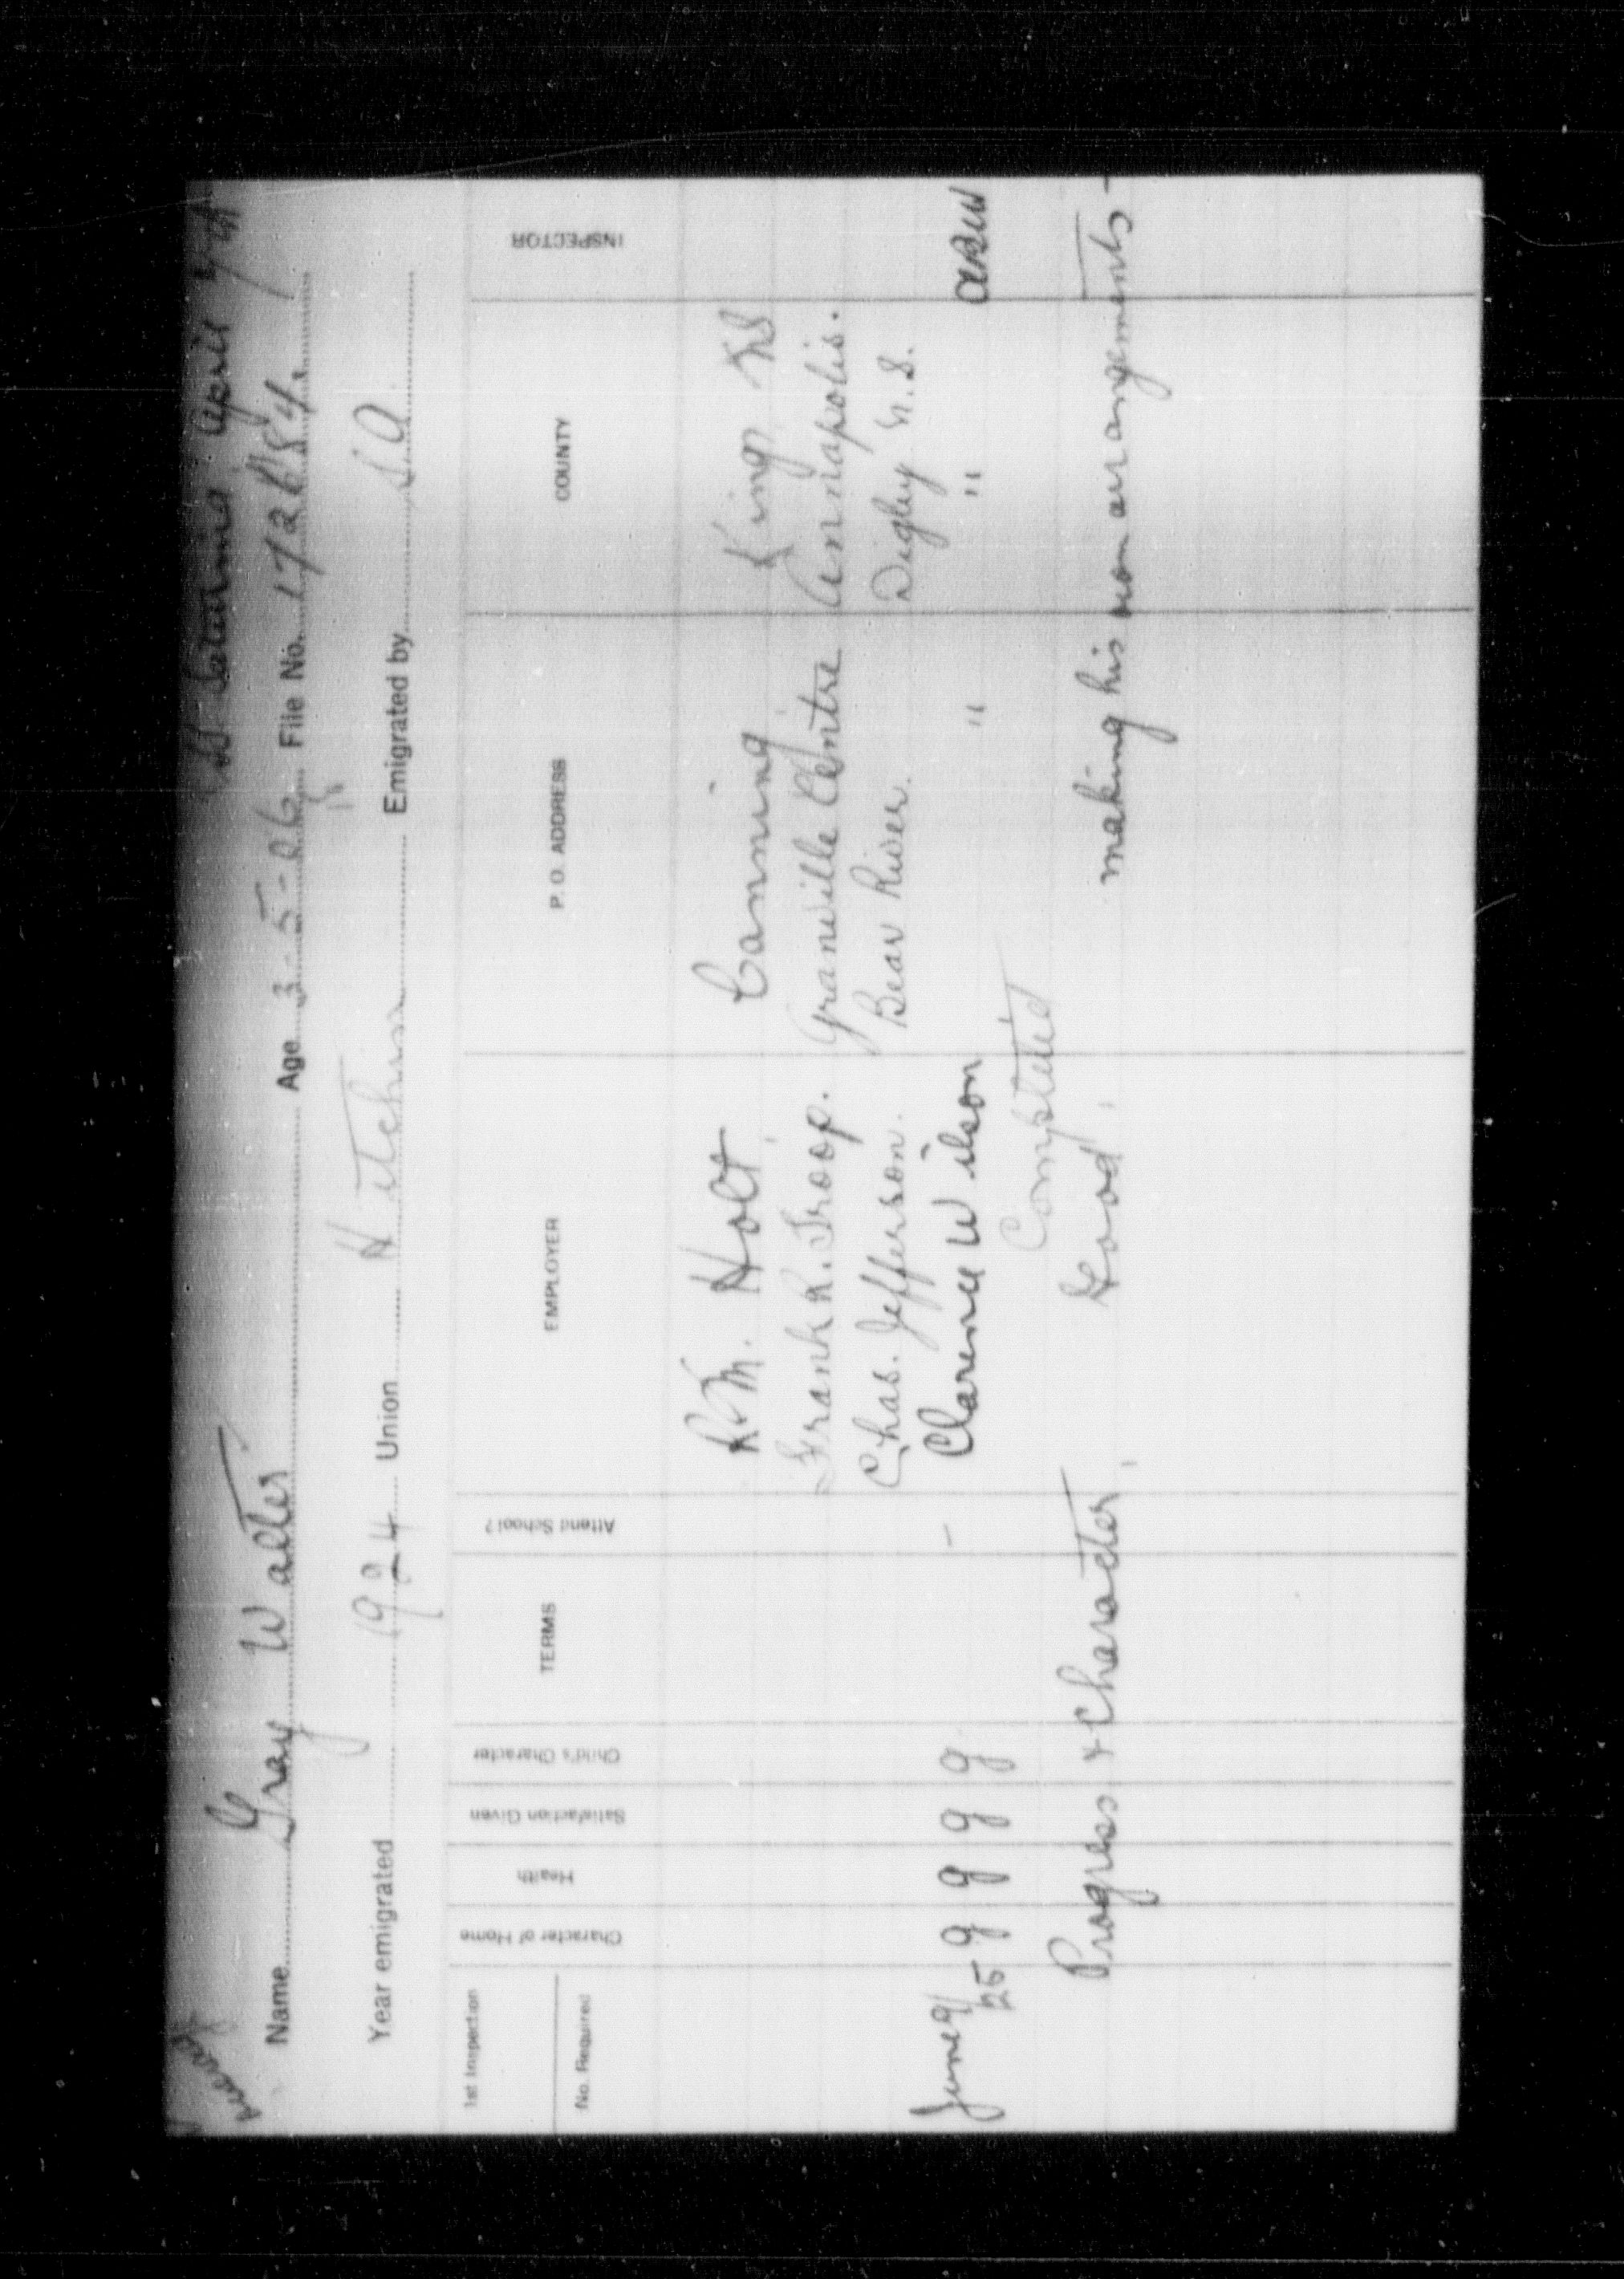 SS Saturnia April 4/24
Name Gray Walter Age 3-5-06 File No. 172684.
Year emigrated 1924 Union Hitchin Emigrated by SA
1st Inspection No. Required Character of Home Health Satisfaction Given Child's Character TERMS Attend School? EMPLOYER P. O. ADDRESS COUNTY INSPECTOR
R.M. Holt Canning Kings NS
Frank R. Troop. Granville Centre Annapolis.
Chas. Jefferson. Bear River. Digby N.S.
June 9/25 g g g g - Clarence Wilson " " 
Completed
Progress & Character, Good, making his own arrangements -